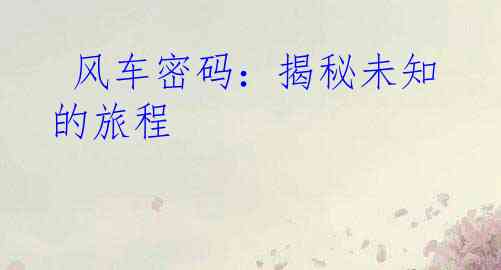 风车密码：揭秘未知
的旅程